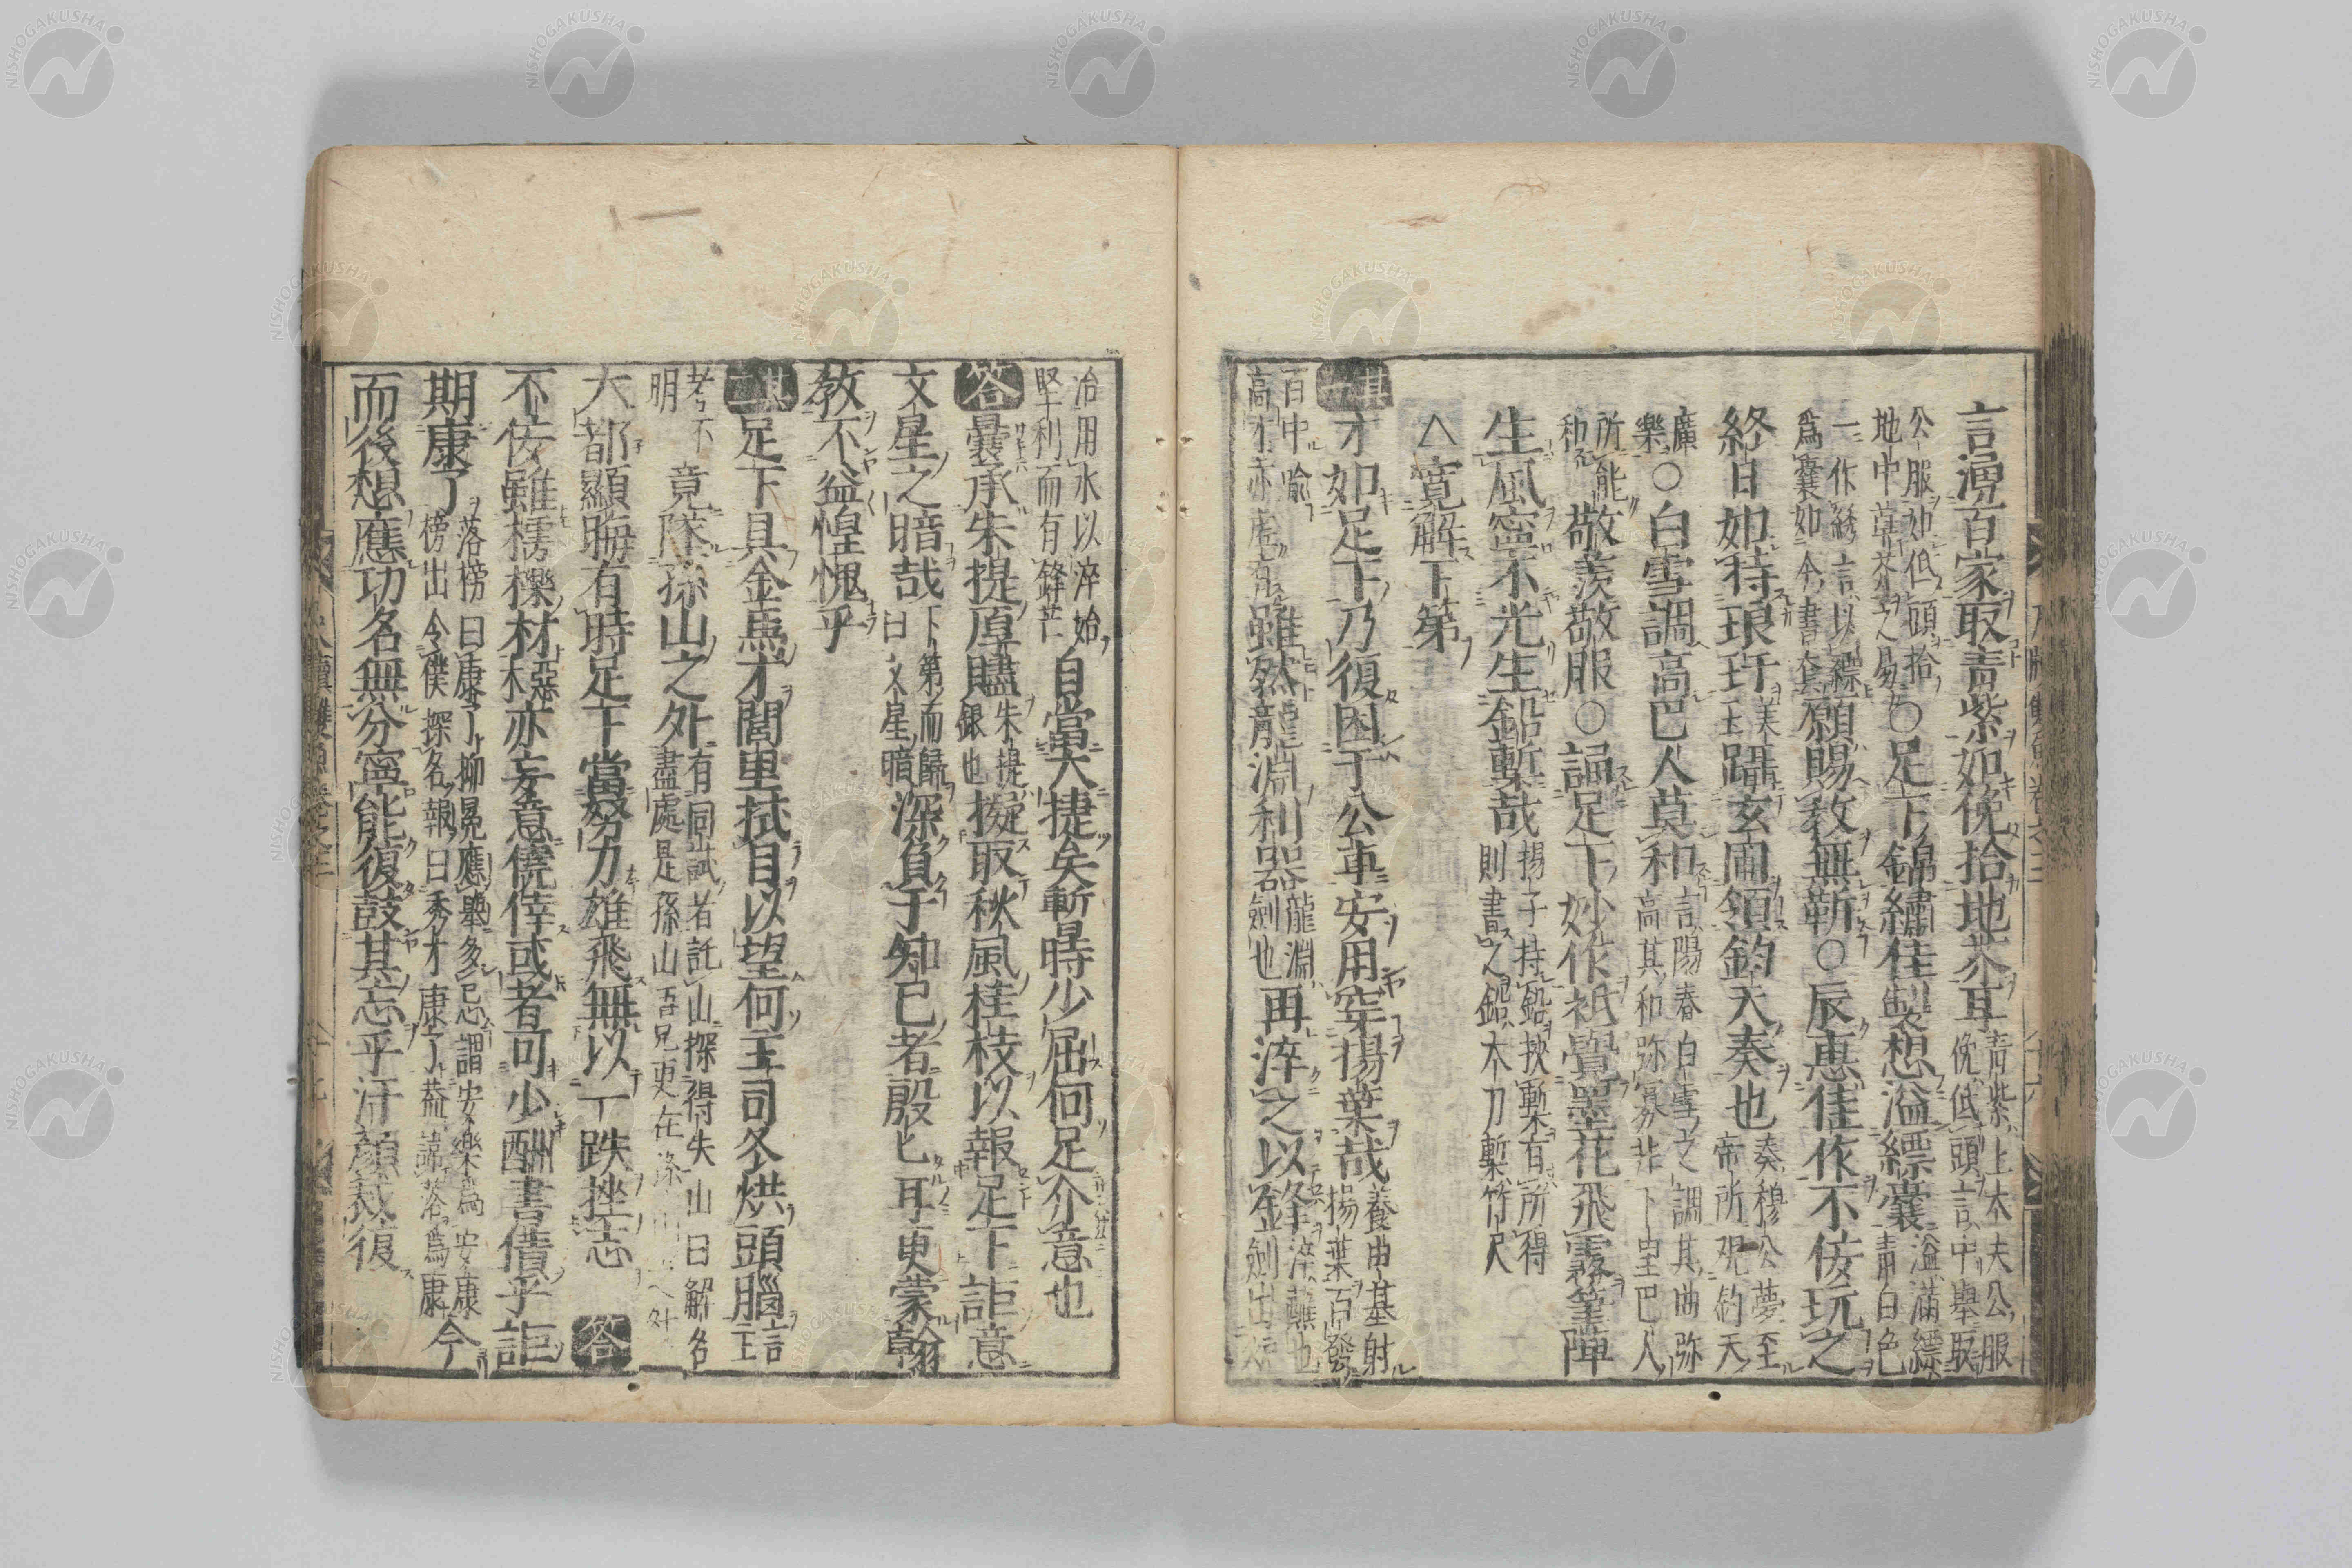 言湧百家取青紫如俛拾地芥耳青紫上大夫公服俛低頭言中舉取
公服如低頭拾地中草芥之易○足下錦繡佳製想溢縹囊溢滿縹青白色
一作綉言以縹爲囊如今書套願賜教無靳○辰惠佳作不佞玩之
終日如持琅玕美玉躡玄圃領鈞天奏也奏穆公夢至帝所覌鈞天
廣樂○白雪調高巴人莫和言陽春白雪之調其曲弥高其和弥寡非下里巴人
所能和敬羨敬服○誦足下妙作祇覺墨花飛霧筆陣
生風寧不光生鉛槧哉揚子持鉛挾槧有所得則書之鉛木刀槧竹尺
△寬解下第
其一才如足下乃復困于公車安用穿揚葉哉養由基射揚葉百發
百中喻高才亦雖然龍淵利器龍淵劍也再淬之以鋒淬蘸也劍出
冶用水以淬始堅利而有鋒芒自當大捷矣暫時少屈何足介意也
答曩承朱提厚贐朱提銀也擬取秋風桂枝以報足下詎意
文星之暗哉下第而歸曰文星暗深負于知已者殷匕耳更蒙翰
教不益惶愧乎
其二足下具金馬才閭里拭目以望何主司冬烘頭腦言主
考不明竟墜孫山之外有同試者託山探得失山曰解名盡處是孫山吾兄更在
大都顯晦有時足下當努力雄飛無以一跌挫志 答
不佞雖樗櫟材惡木亦妄意僥倖或者可少酬書債乎詎
期康了落榜曰康了柳冕應舉多忌謂安樂爲安康榜出令僕探名報曰秀才康了蓋諱落爲康今
而後想應功名無分寧能復鼓其志乎汗顏裁復